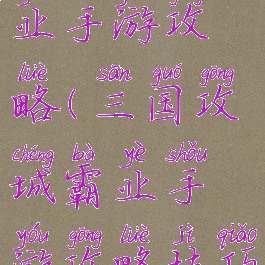 业手游攻
lüè sān guó gōng
略(三国攻
chéng bà yè shǒu
城霸业手
yóu gōng lüè jì qiǎo
游攻略技巧